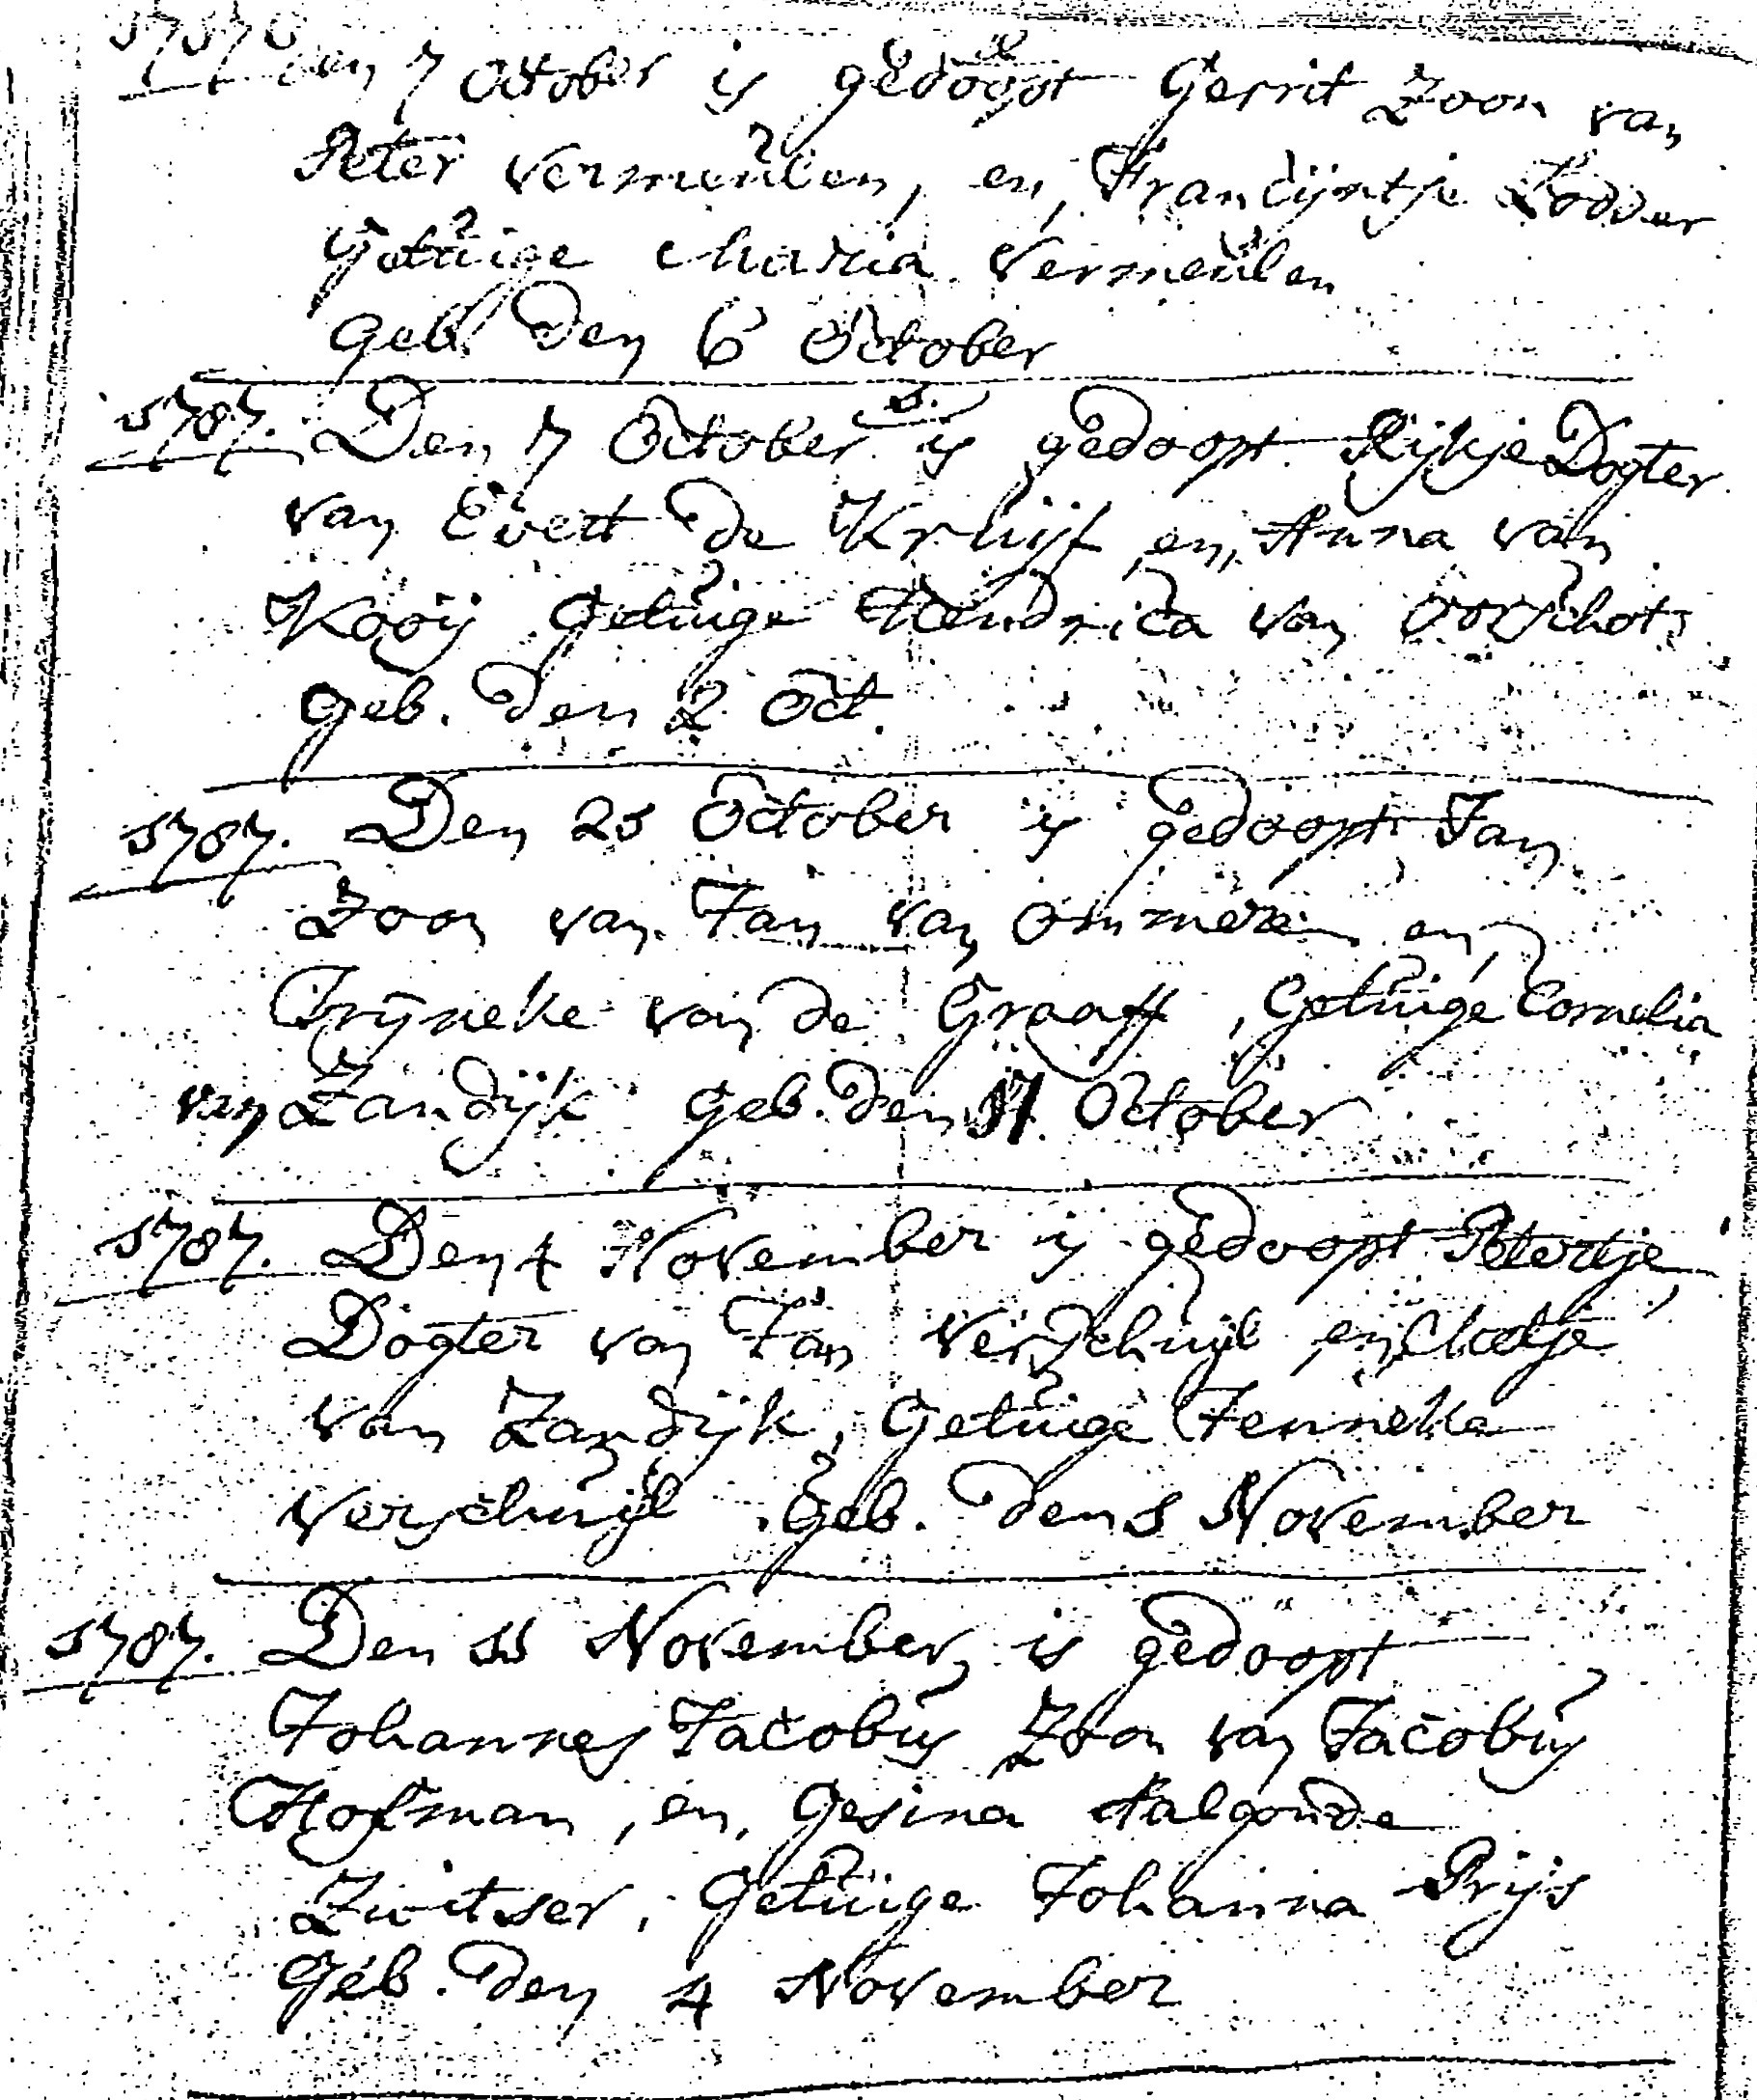 1787 Den 7 October is gedoopt Gerrit Zoon van
Peter Vermeulen, en, Francijntje Lodder
Getuige Maria Vermeulen
geb. den 6 October
1787. Den 7 October is gedoopt Rijkje Dogter
van Evert de Kruijf en, Anna van
Kooij Getuige Hendrica van Oorschot
geb. den 2 Oct.
1787. Den 21 October is gedoopt Jan
Zoon van Jan van Ommeren en,
Trijneke van de Graaff, Getuige Cornelia
van Zandijk geb. den 17. October
1787. Den 4 November is gedoopt Petertje,
Dogter van Jan Verschuijl en,
van Zandijk, Getuige Jenneke
Verschuijl Geb. den 1 November
1787. Den 11 November, is gedoopt
Johannes Jacobus Zoon van Jacobus
Hofman, en, Gesina Aalgonde
Zwitser, Getuige Johanna Prijs
Geb. den 4 November